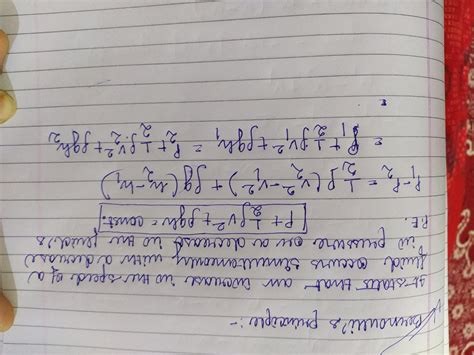 Bernoulli's principle:-
It states that an increase in the speed of a
fluid occurs simultaneously with a decrease
in pressure or a decrease in the fluid's
P.E.
P + 1/2 ρv² + ρgh = const.
P₁ - P₂ = 1/2 ρ (v₂² - v₁²) + ρg (h₂ - h₁)
= P₁ + 1/2 ρv₁² + ρgh₁ = P₂ + 1/2 ρv₂² + ρgh₂